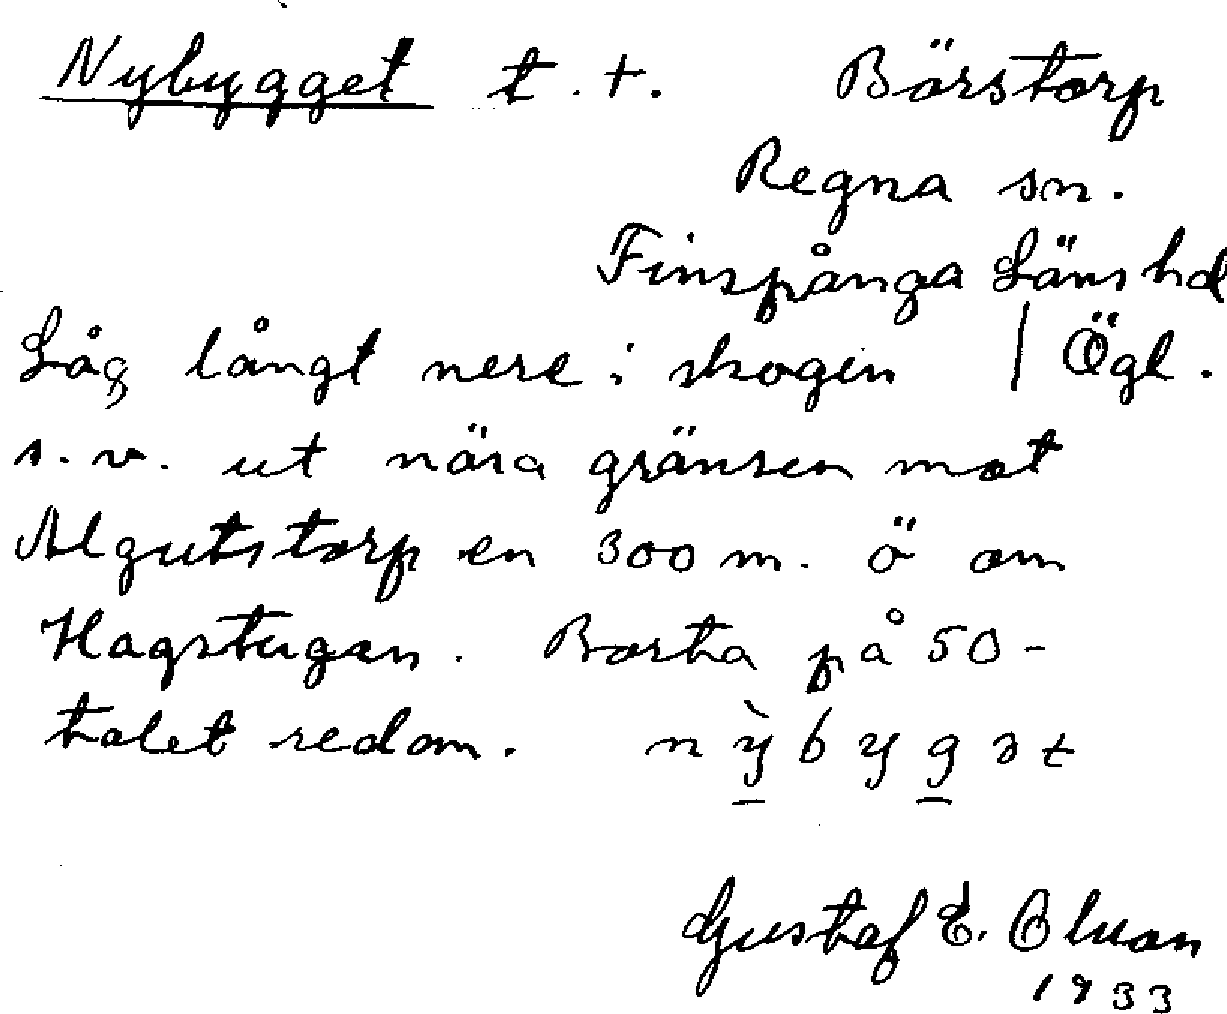 Nybygget t. †. Börstorp
Regna sn.
Finspånga Läns hd
Låg långt nere i skogen | Ögl.
s.v. ut nära gränsen mot
Algutstorp en 300 m. ö om
Hagstugan. Borta på 50-
talet redan. nỳbygət
Gustaf E. Olsson
1933